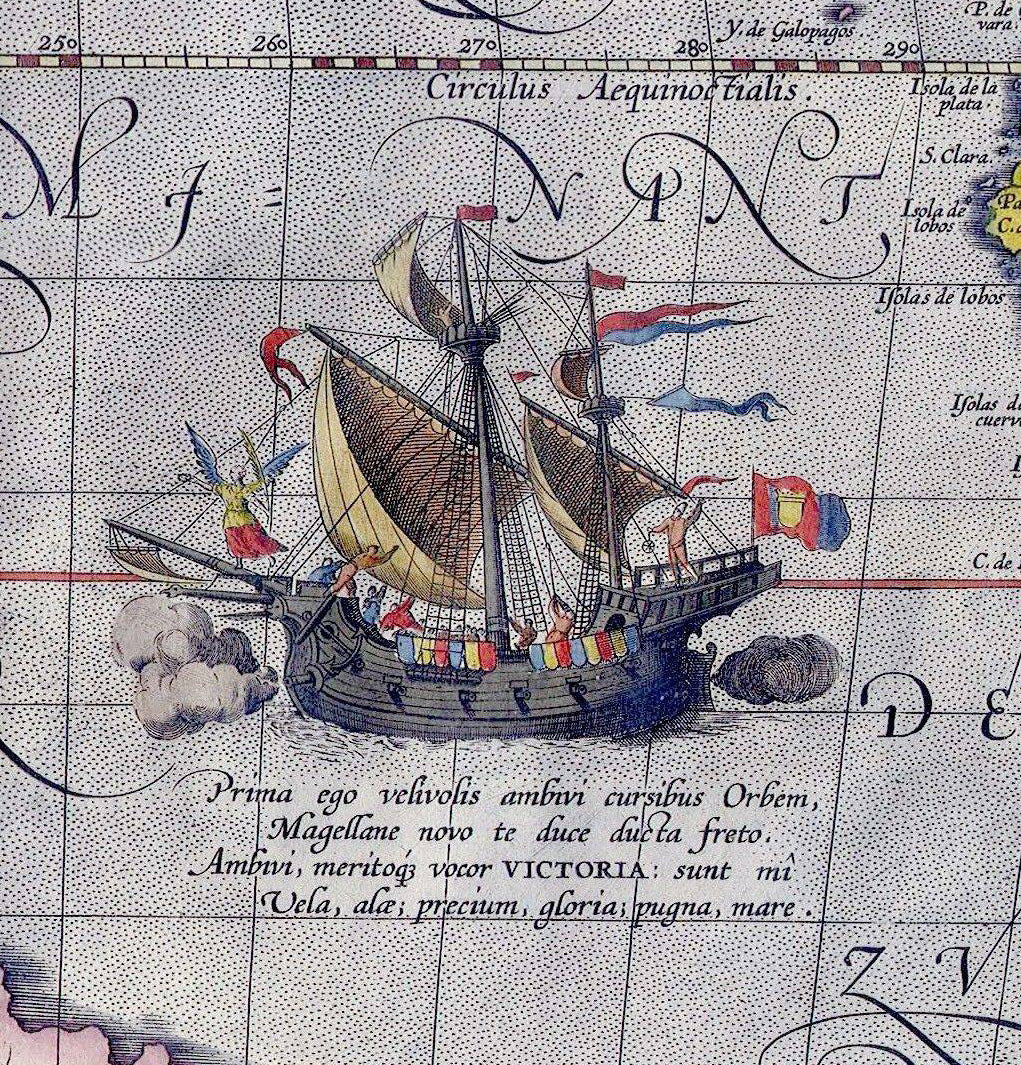 Y. de Galopagos.
P. de
vara
250 260 270 280 290
Circulus Aequinoctialis.
Isola de la
plata.
S. Clara.
M I = N A N T
Isola de
lobos
C.
Isolas de lobos
Isolas de
cuerv
C. de
D E
Prima ego velivolis ambivi cursibus Orbem,
Magellane novo te duce ducta freto.
Ambivi, meritoq́ꝫ vocor VICTORIA: sunt mî
Vela, alæ; precium, gloria; pugna, mare.
Z V